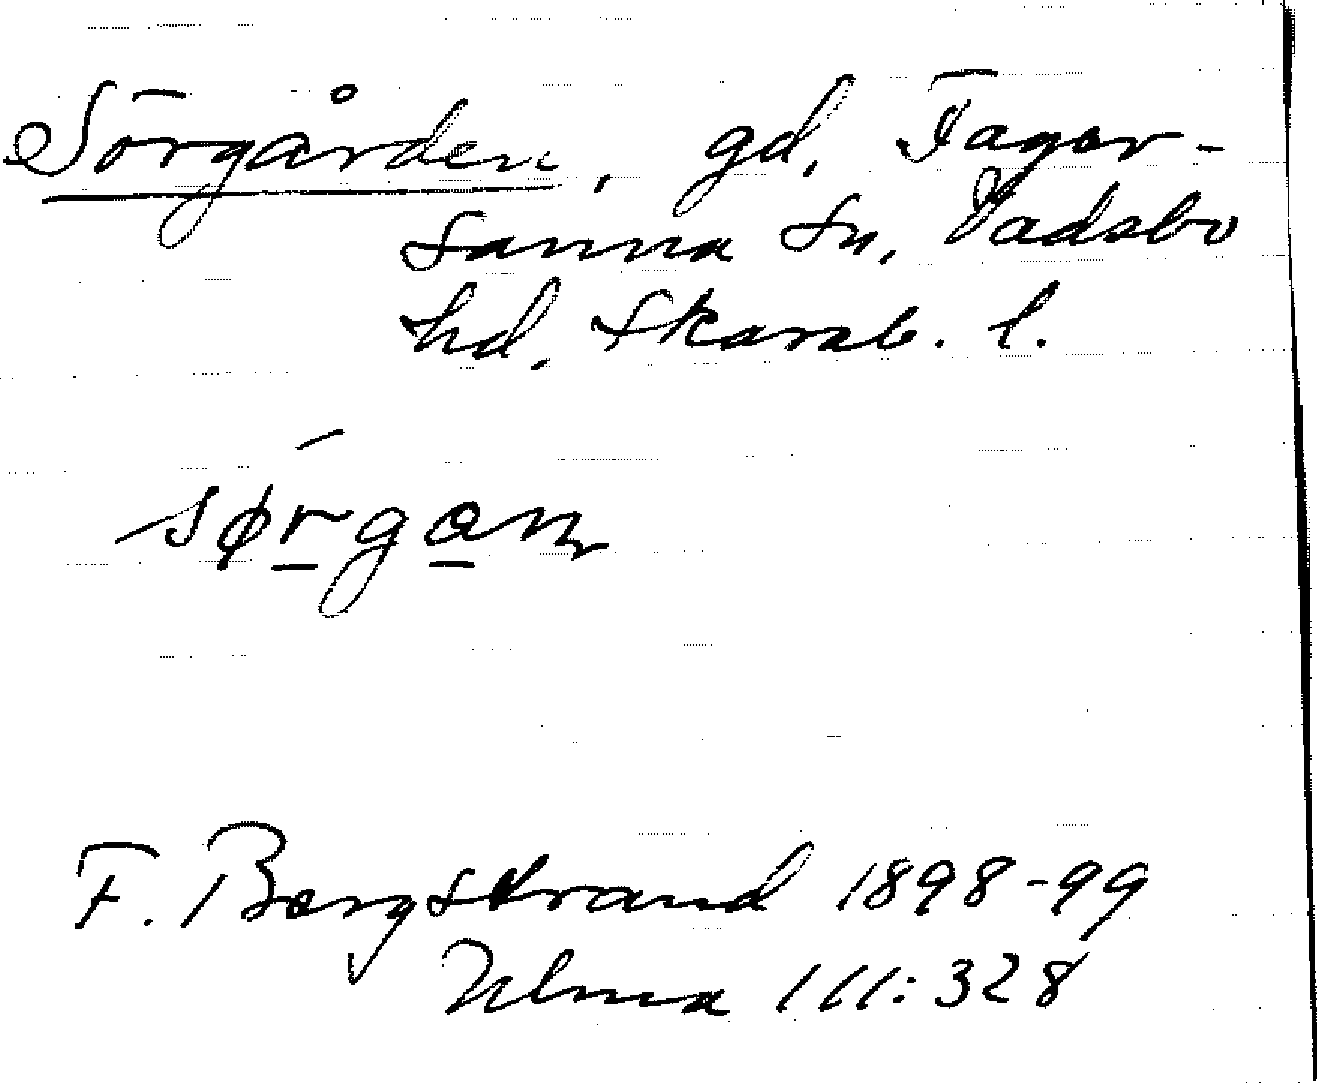 Sörgården, gd, Fager-
sanna sn, Vadsbo
hd. Skarab. l.
sø̱rga̱ṇ
F. Bergstrand 1898-99
Ulma 111:328